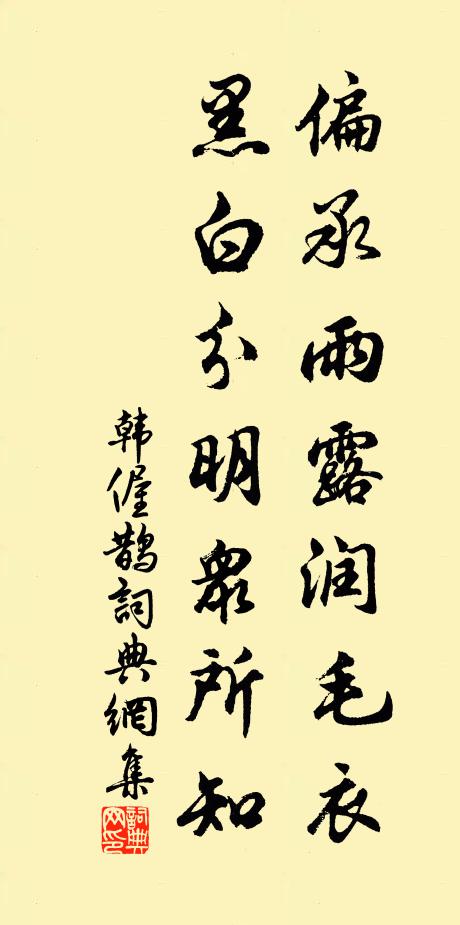 偏承雨露润毛衣
黑白分明眾所知
韩偓鹊詞典網集
詞典网印